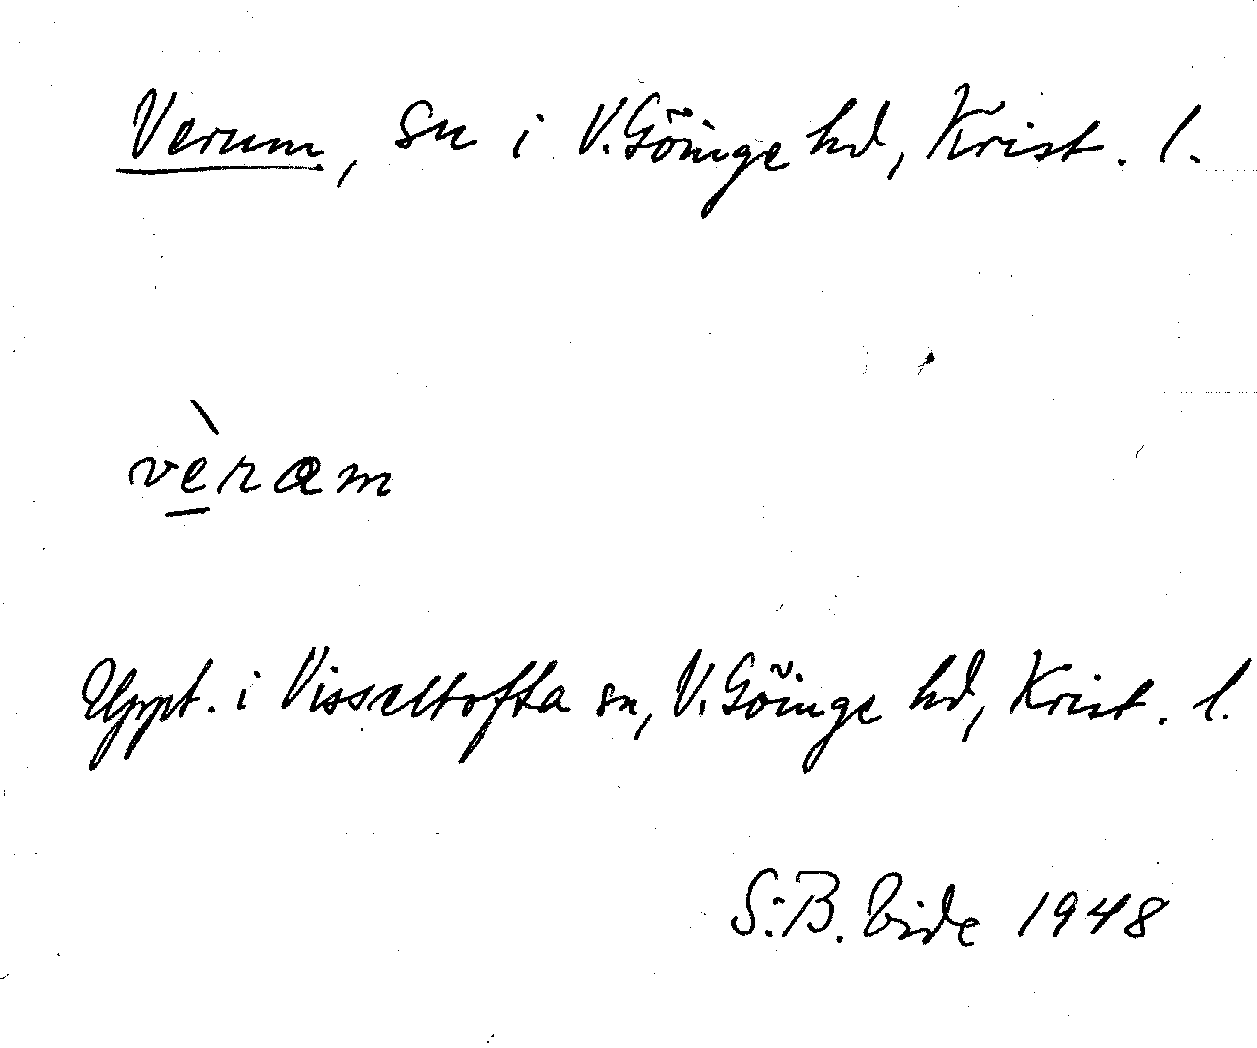 Verum, sn i V. Göinge hd, Krist. l.
vèræm
Uppt. i Visseltofta sn, V. Göinge hd, Krist. l.
S:B. Vide 1948